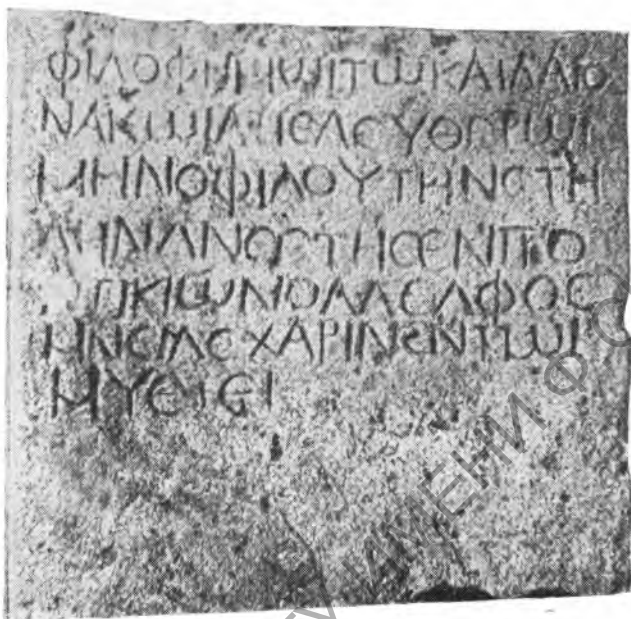 ΦΙΛΟΦΗΜΩΙΤΩΚΑΙΔΑΙΟ
ΝΑΚΩΙΑΠΕΛΕΥΘΕΡΩΙ
ΜΗΝΟΦΙΛΟΥΤΗΝϹΤΗ
ΛΗΝΑΝΕϹΤΗϹΕΝΠΟ
ΠΚΙΩΝΟΑΔΕΛΦΟϹ
ΜΝΕΜΕΧΑΡΙΝΕΝΤΩΙ
ΗΥΕΤΕΙ
ИМЕНИ Ф